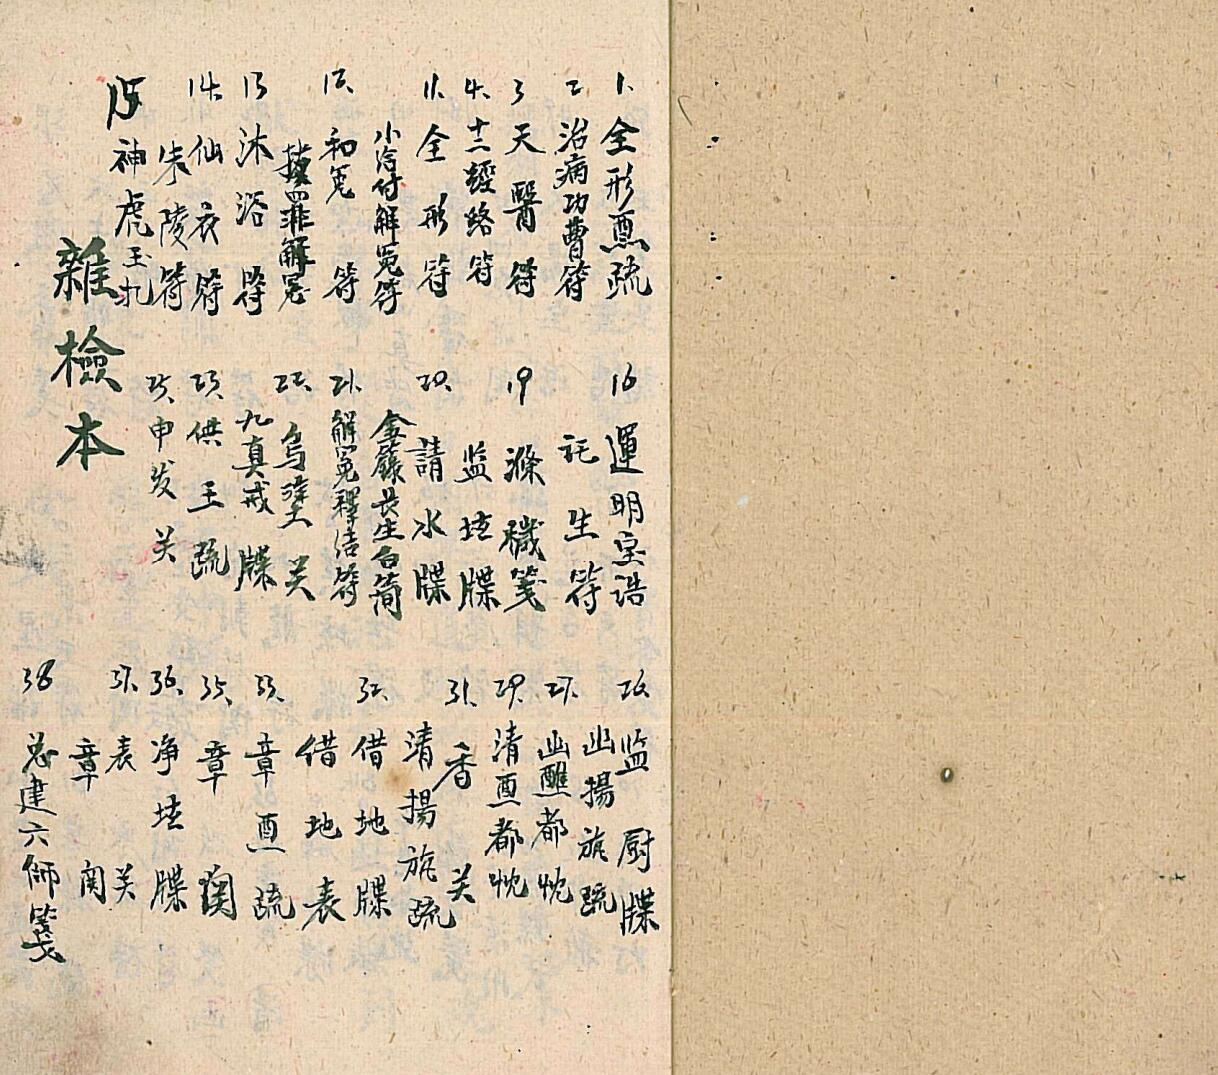 1. 全形酉疏
2. 治病功曹符
3 天醫符
4. 十二經路符
11. 全形符
小冶付解冤符
12. 和冤符
㨿罪解冤
13 沐浴符
14. 仙衣符
朱陵符
15 神虎玉札
雜檢本
16 運明宝诰
託生符
19 滌穢箋
监坛牒
20. 請水牒
金籙长生白简
21. 解冤释结符
22. 乌㙮关
九真戒牒
23. 供王疏
25. 申发关
26. 监厨牒
幽揚旂疏
27. 幽醮都忱
29. 清酉都忱
31. 香关
清揚旂疏
32. 借地牒
借地表
33. 章酉疏
35. 章関
36. 净坛牒
37. 表关
章関
38 总建六师笺